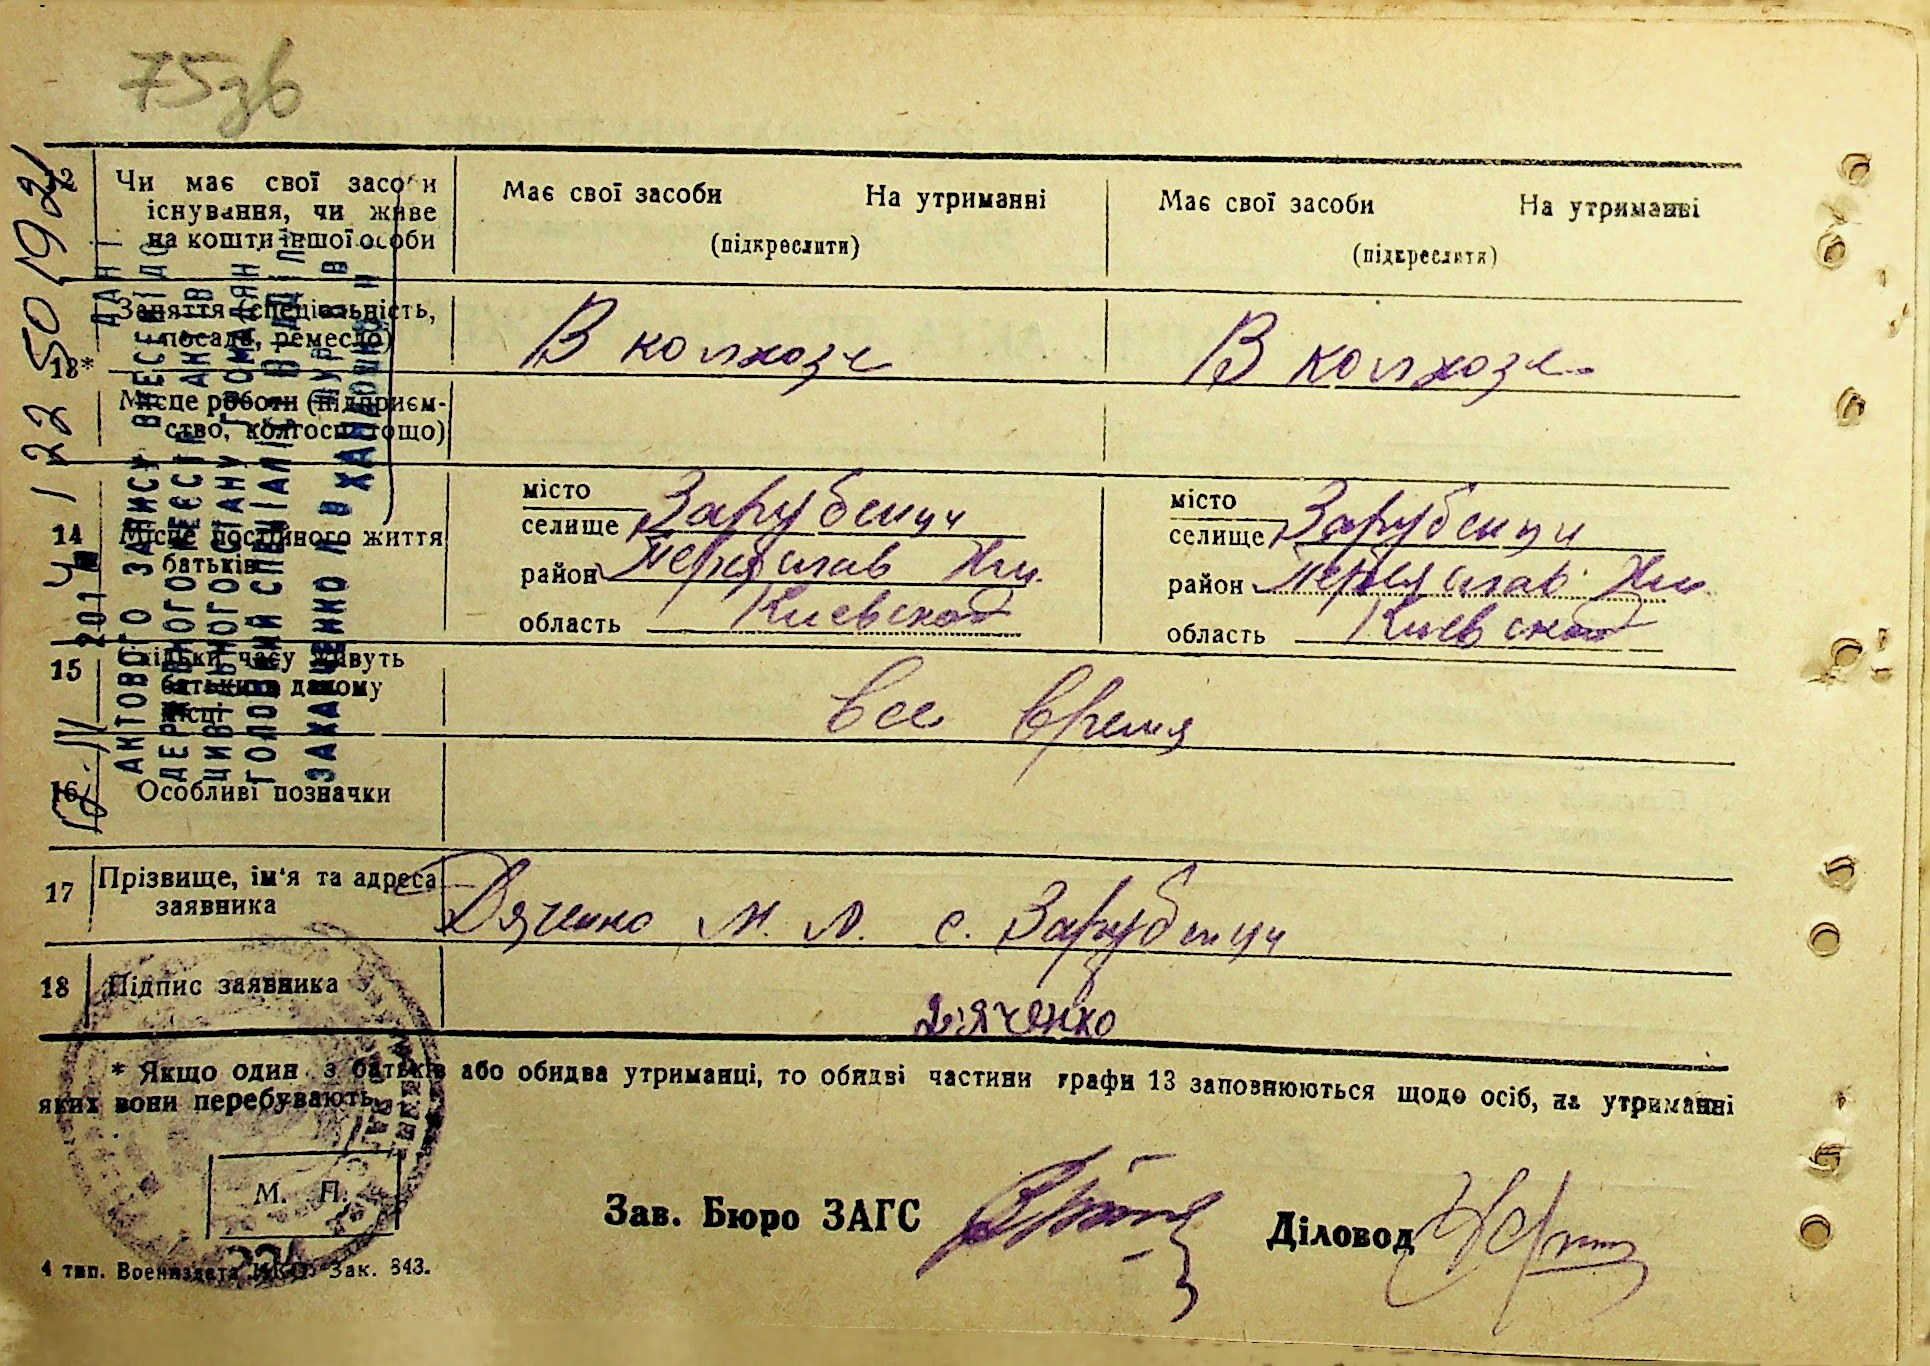 75зв
Чи має свої засоби існування, чи живе на кошти іншої особи
Має свої засоби На утриманні
(підкреслити)
Має свої засоби На утриманні
(підкреслити)
13*
Заняття (спеціальність, посада, ремесло)
В колхозе
В колхозе
Місце роботи (підприєм-
ство, колгосп тощо)
14
Місце постійного життя батьків
місто
селище Зарубенци
район Переяслав Хм.
область Киевской
місто
селище Зарубенци
район Переяслав Хм.
область Киевской
15
Скільки часу живуть батьки в даному місці
все время
16
Особливі позначки
17
Прізвище, ім'я та адреса заявника
Дяченко М. Л. с. Зарубенци
18
Підпис заявника
Дяченко
* Якщо один з батьків або обидва утриманці, то обидві частини графи 13 заповнюються щодо осіб, на утриманні
яких вони перебувають.
М. П.
Зав. Бюро ЗАГС
Діловод
4 тип. Воениздата НКО. Зак. 843.
АКТОВОГО ЗАПИСУ ВНЕСЕНІ ДО
ДЕРЖАВНОГО РЕЄСТРАЦІЇ АКТІВ
ЦИВІЛЬНОГО СТАНУ ГРОМАДЯН
ГОЛОВНИЙ СПЕЦІАЛІСТ ВІДДІЛУ